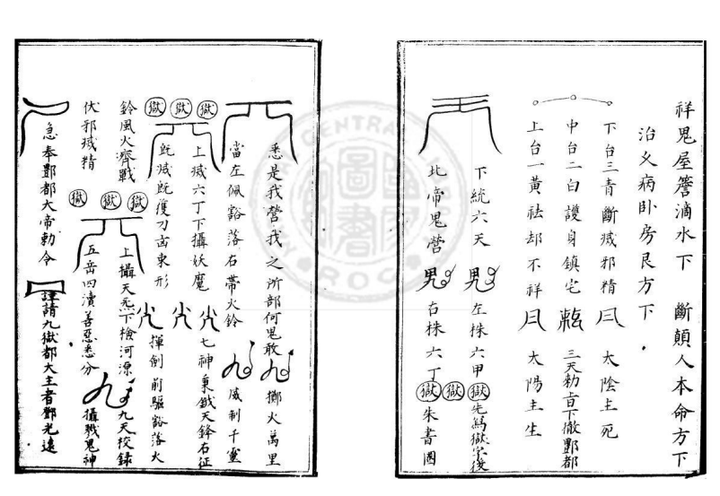 祥鬼屋簷滴水下　斷顛人本命方下
治久病卧房艮方下
下台三青斷滅邪精　太陰主死
中台二白護身鎮宅　三天勅旨下撤酆都
上台一黃祛却不祥　太陽主生
下統六天　左株六甲　獄
北帝鬼營　右株六丁　獄獄　朱書圈
悉是我營我之所部何鬼敢　擲火萬里
當左佩豁落右帶火鈴　威制千靈
獄獄獄　上滅六丁下攝妖魔　七神秉鉞天鋒右征
既滅既復刀古東形　揮劍前驅豁落火
鈴風火齊戰　獄獄　上攝天元下檢河源　九天校錄
伏邪滅精　獄　五岳四瀆善惡悉分　攝戮鬼神
急奉酆都大帝勅令　謹請九獄都大主者鄧光遠
CENTRAL
圖書
ROC